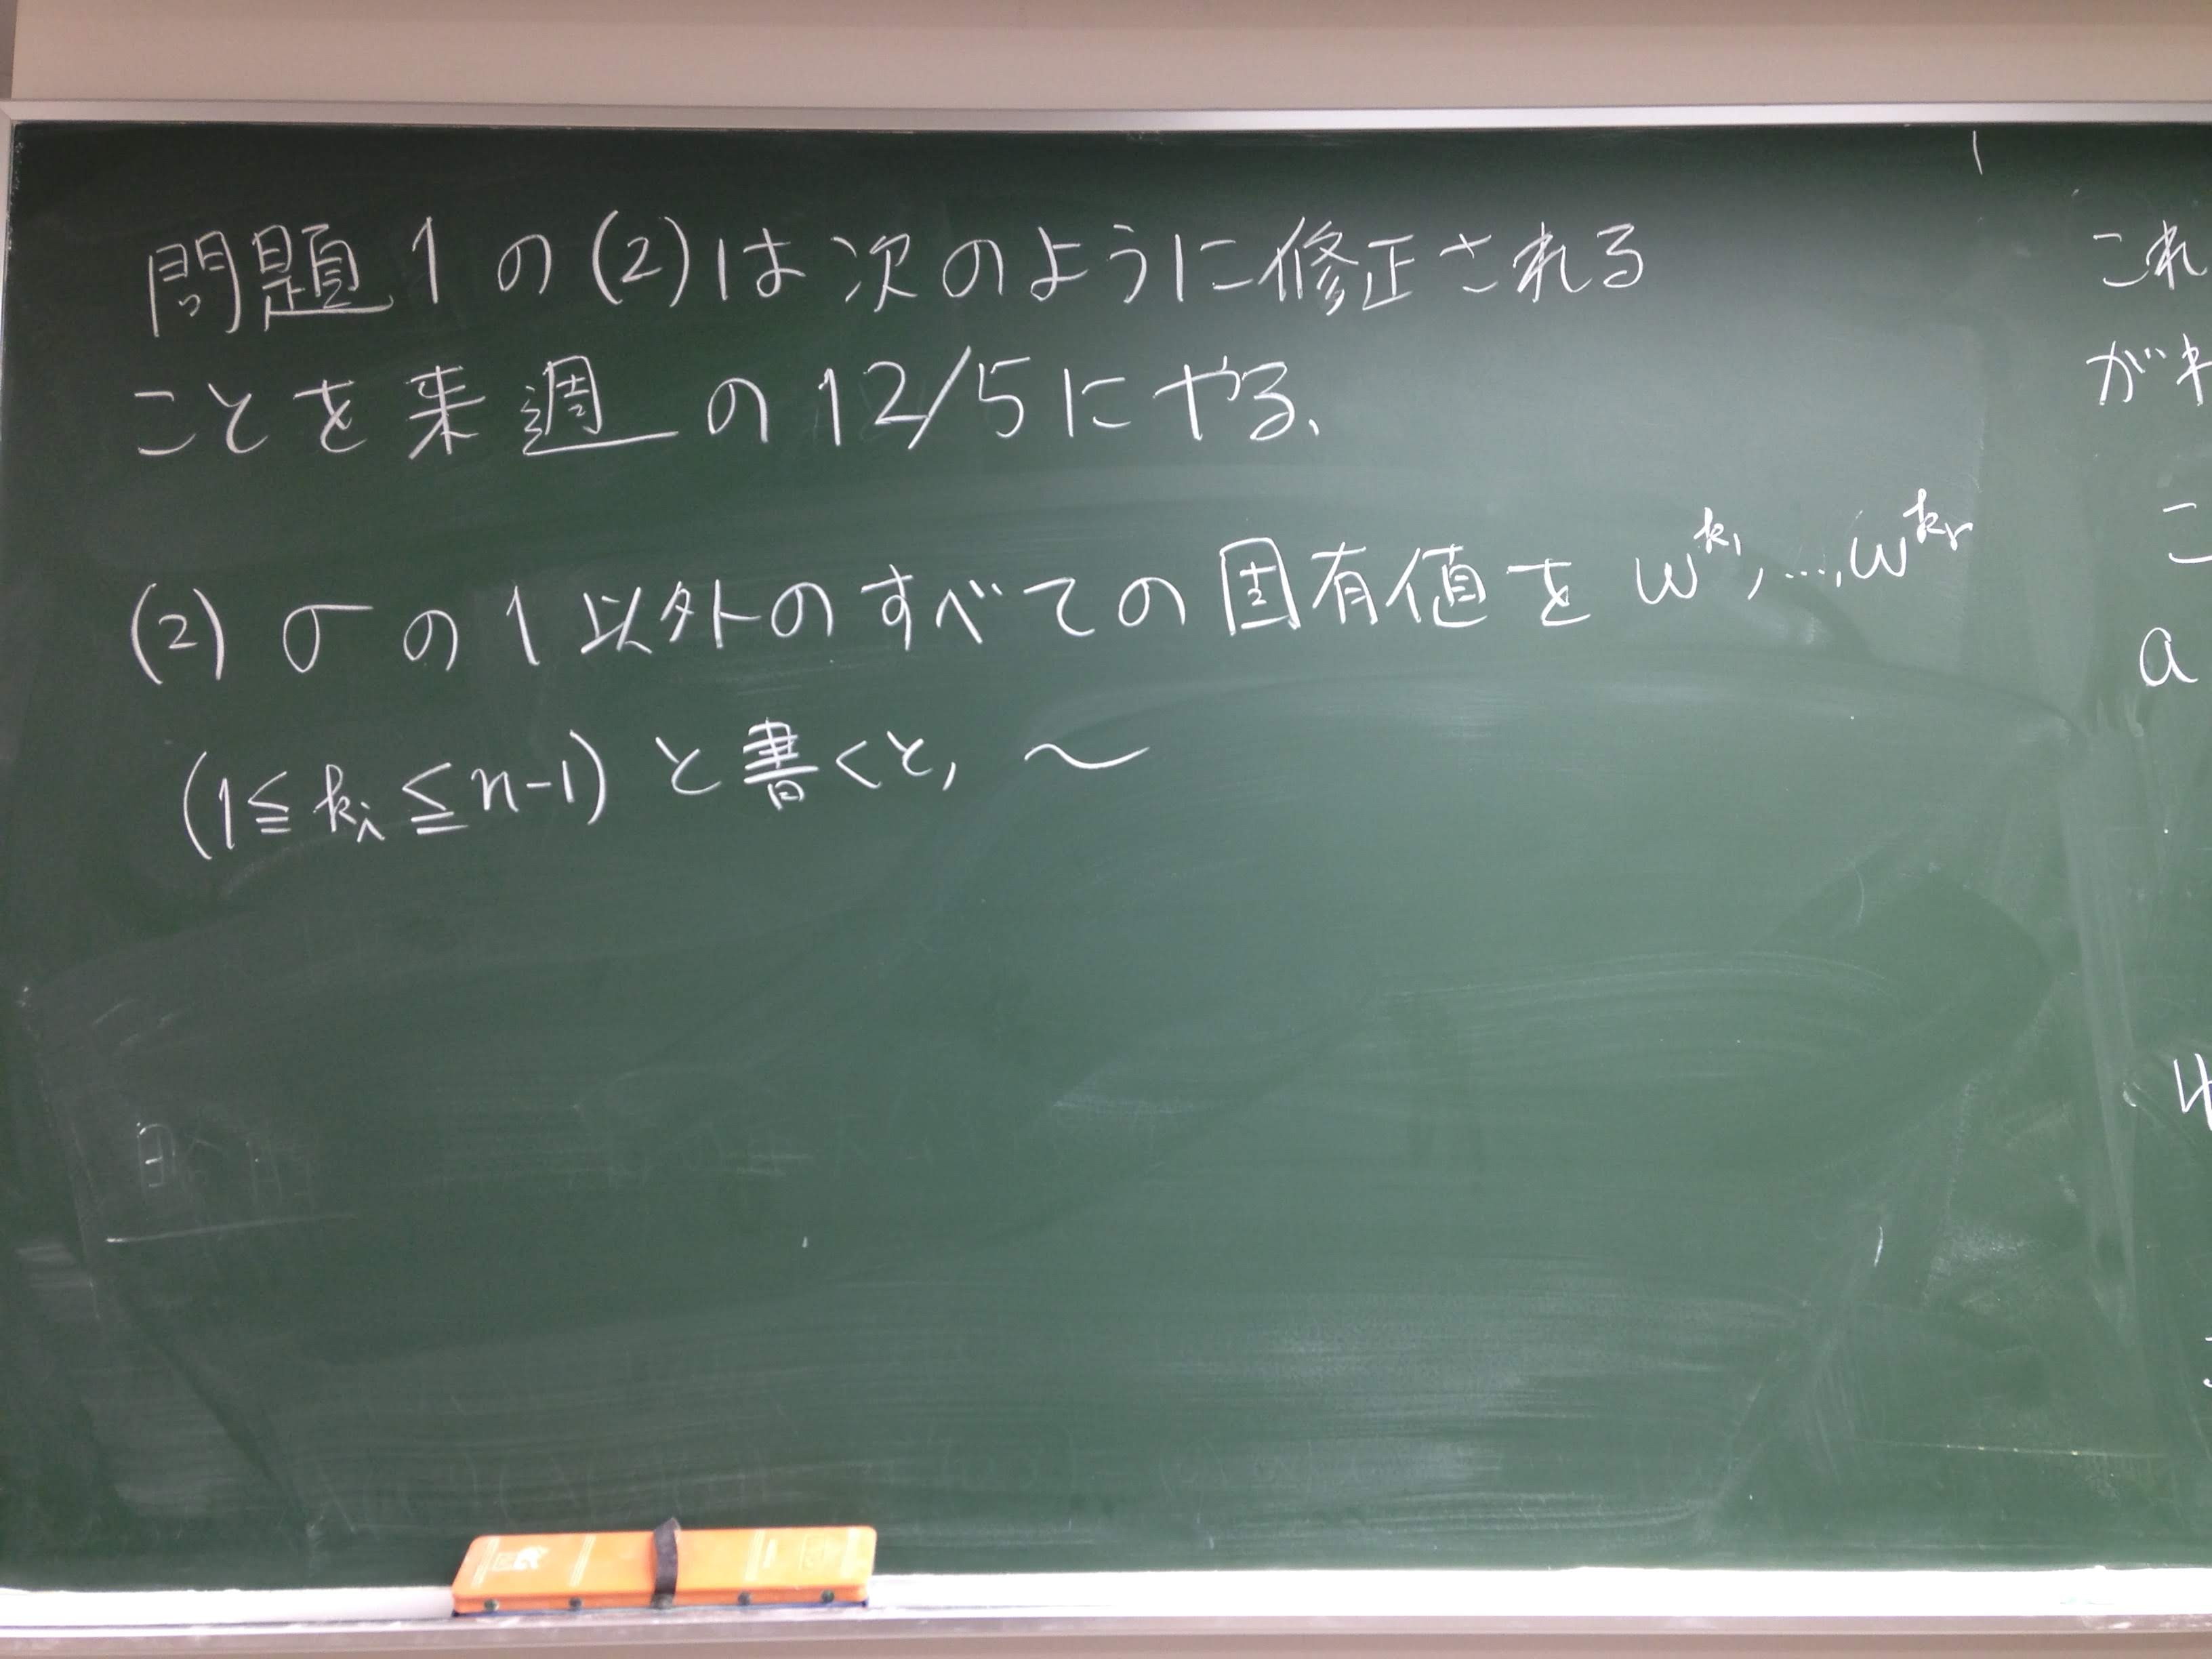 問題1の(2)は次のように修正される
ことを来週の12/5にやる、
(2) σの1以外のすべての固有値を ω^{k_1}, ..., ω^{k_r}
(1≦k_i≦n-1)と書くと, 〜
これ
が
a